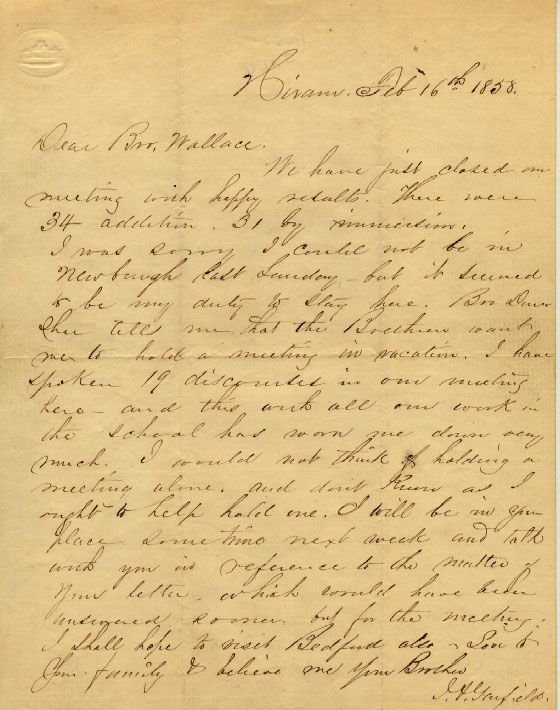 Hiram. Feb 16th 1858.
Dear Bro, Wallace.
We have just closed our
meeting with happy results. There were
34 addition. 31 by immersion.
I was sorry I could not be in
Newburgh last Sunday - but it seemed
to be my duty to stay here. Bro
tells me that the Brethren want
me to hold a meeting in vacation. I have
spoken 19 discourses in our meeting
here - and this with all our work in
the school has worn me down very
much. I would not think of holding a
meeting alone. and don't know as I
ought to help hold one. I will be in your
place some time next week and talk
with you in reference to the matter of
your letter. which would have been
answered sooner. but for the meeting.
I shall hope to visit Bedford also - Love to
Your family & believe me Your Brother
J. A. Garfield.